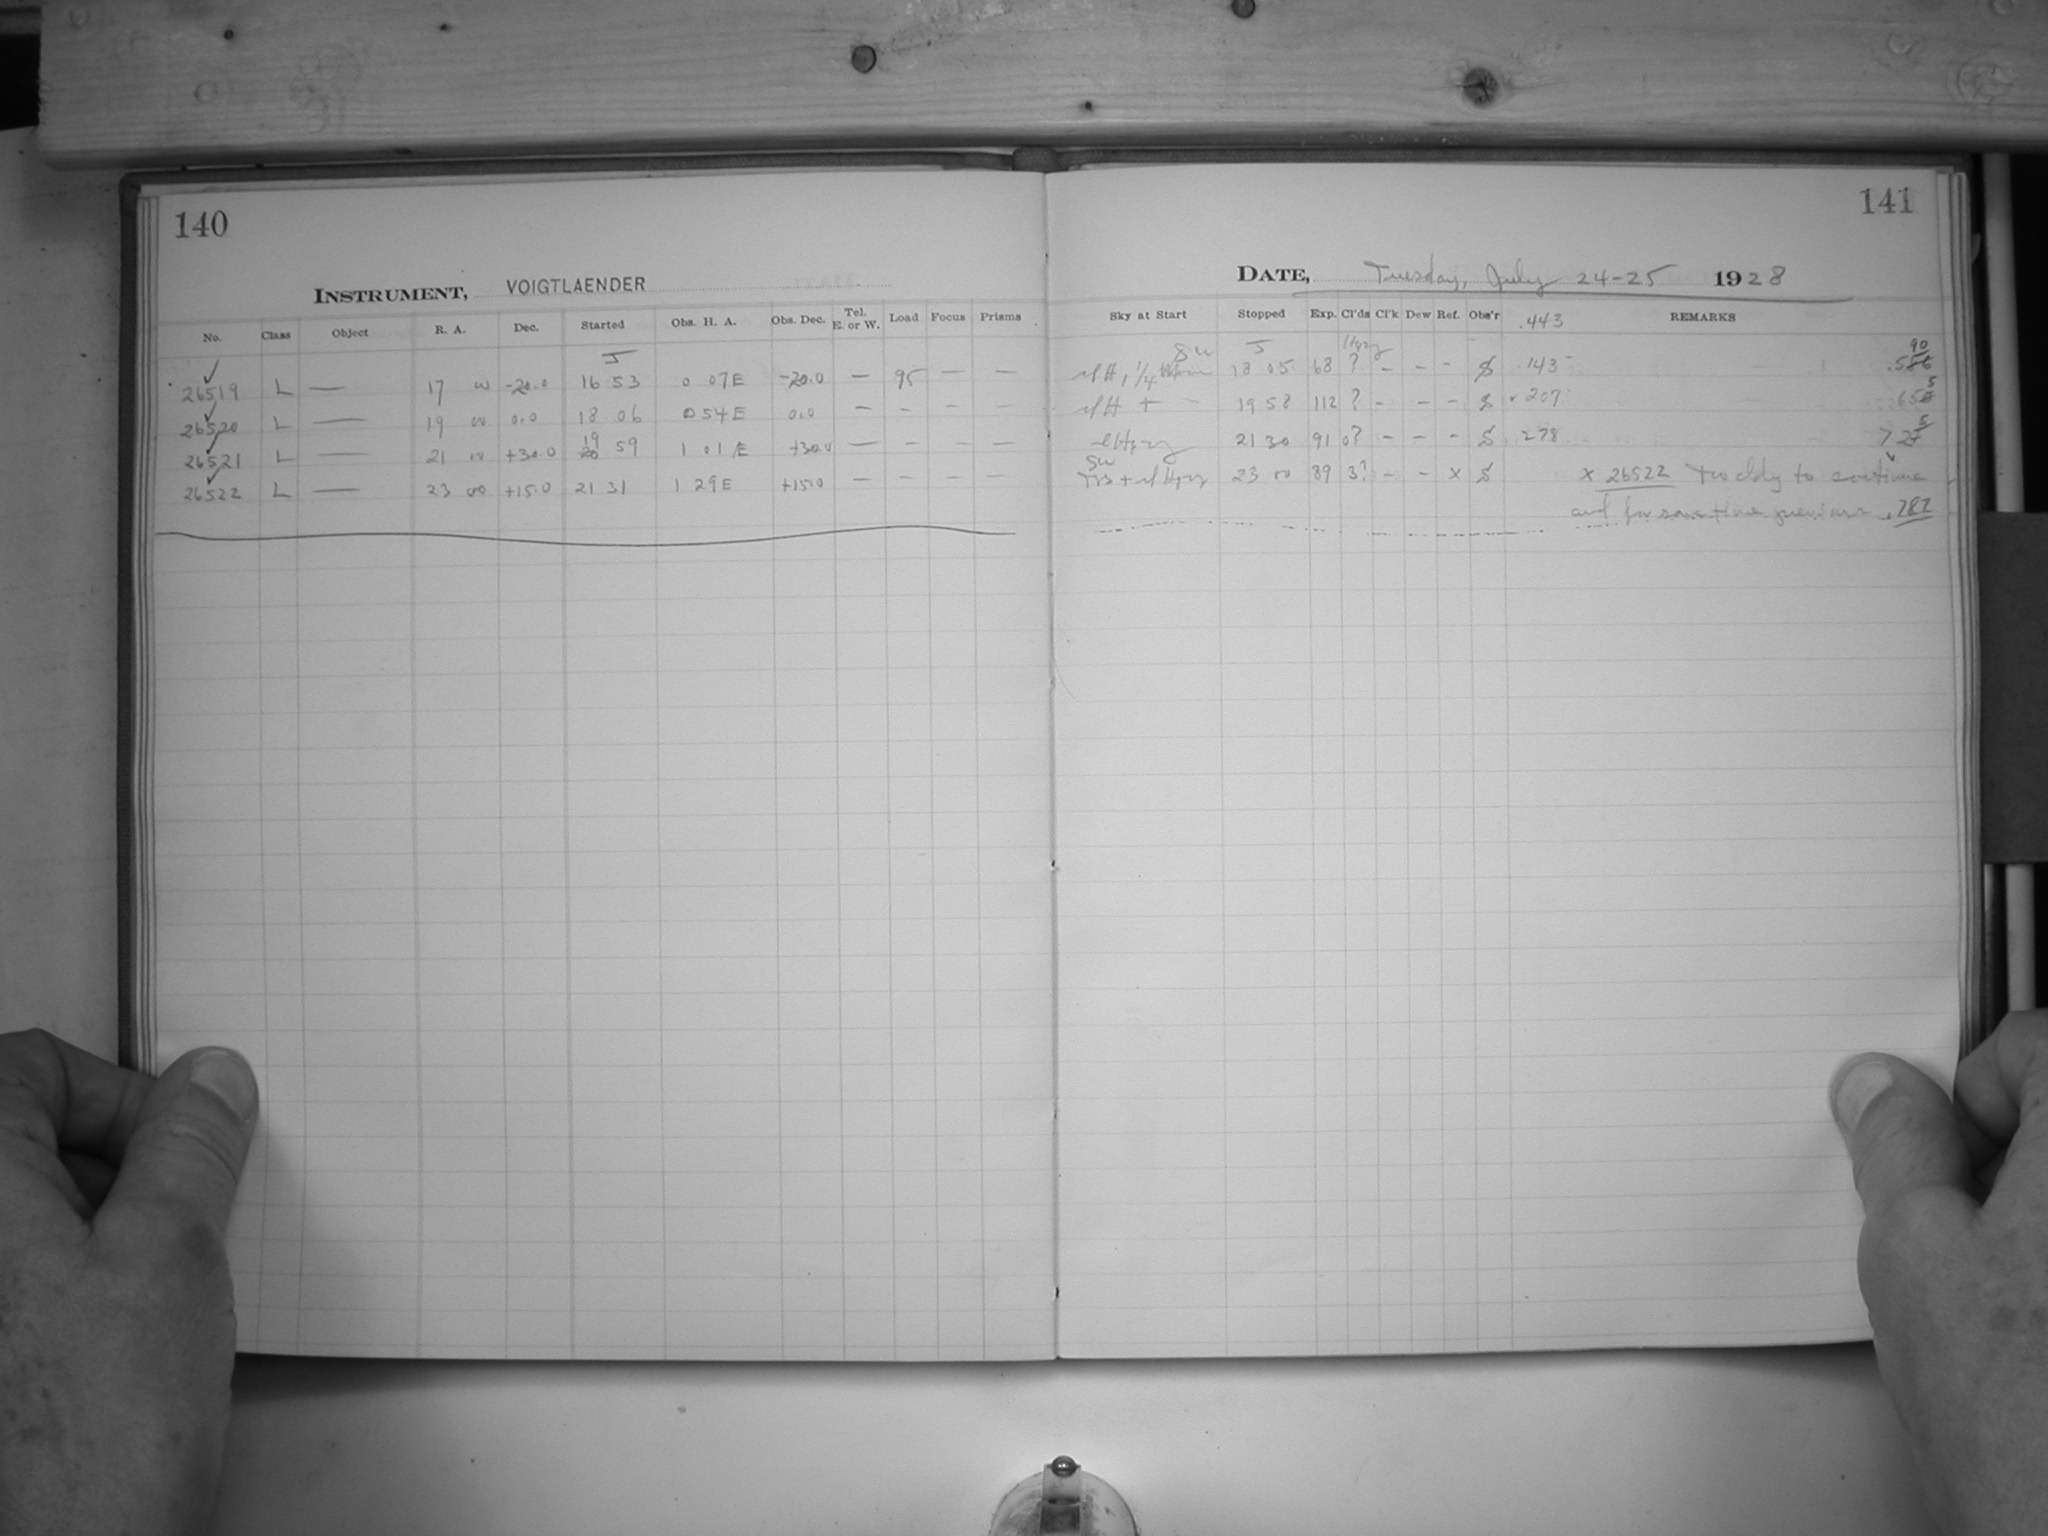 140
INSTRUMENT, VOIGTLAENDER
No. Class Object R. A. Dec. Started Obs. H. A. Obs. Dec. Tel. E. or W. Load Focus Prisms
26519 L — 17 00 -20.0 16 53 0 07E -20.0 — 95 — —
26520 L — 19 00 0.0 18 06 0 54E 0.0 — - — —
26521 L — 21 00 +30.0 19 59 1 01E +30.0 — - — —
26522 L — 23 00 +15.0 21 31 1 29E +15.0 — - — —
141
DATE, Tuesday, July 24-25 1928
Sky at Start Stopped Exp. Cl'ds Cl'k Dew Ref. Obs'r .443 REMARKS
18 05 68 ? - - - S .143
19 58 112 ? - - - S .207
21 30 91 0? - - - S .278
23 00 89 3? - - x S x 26522 Too cldy to continue
and for some time previous .782